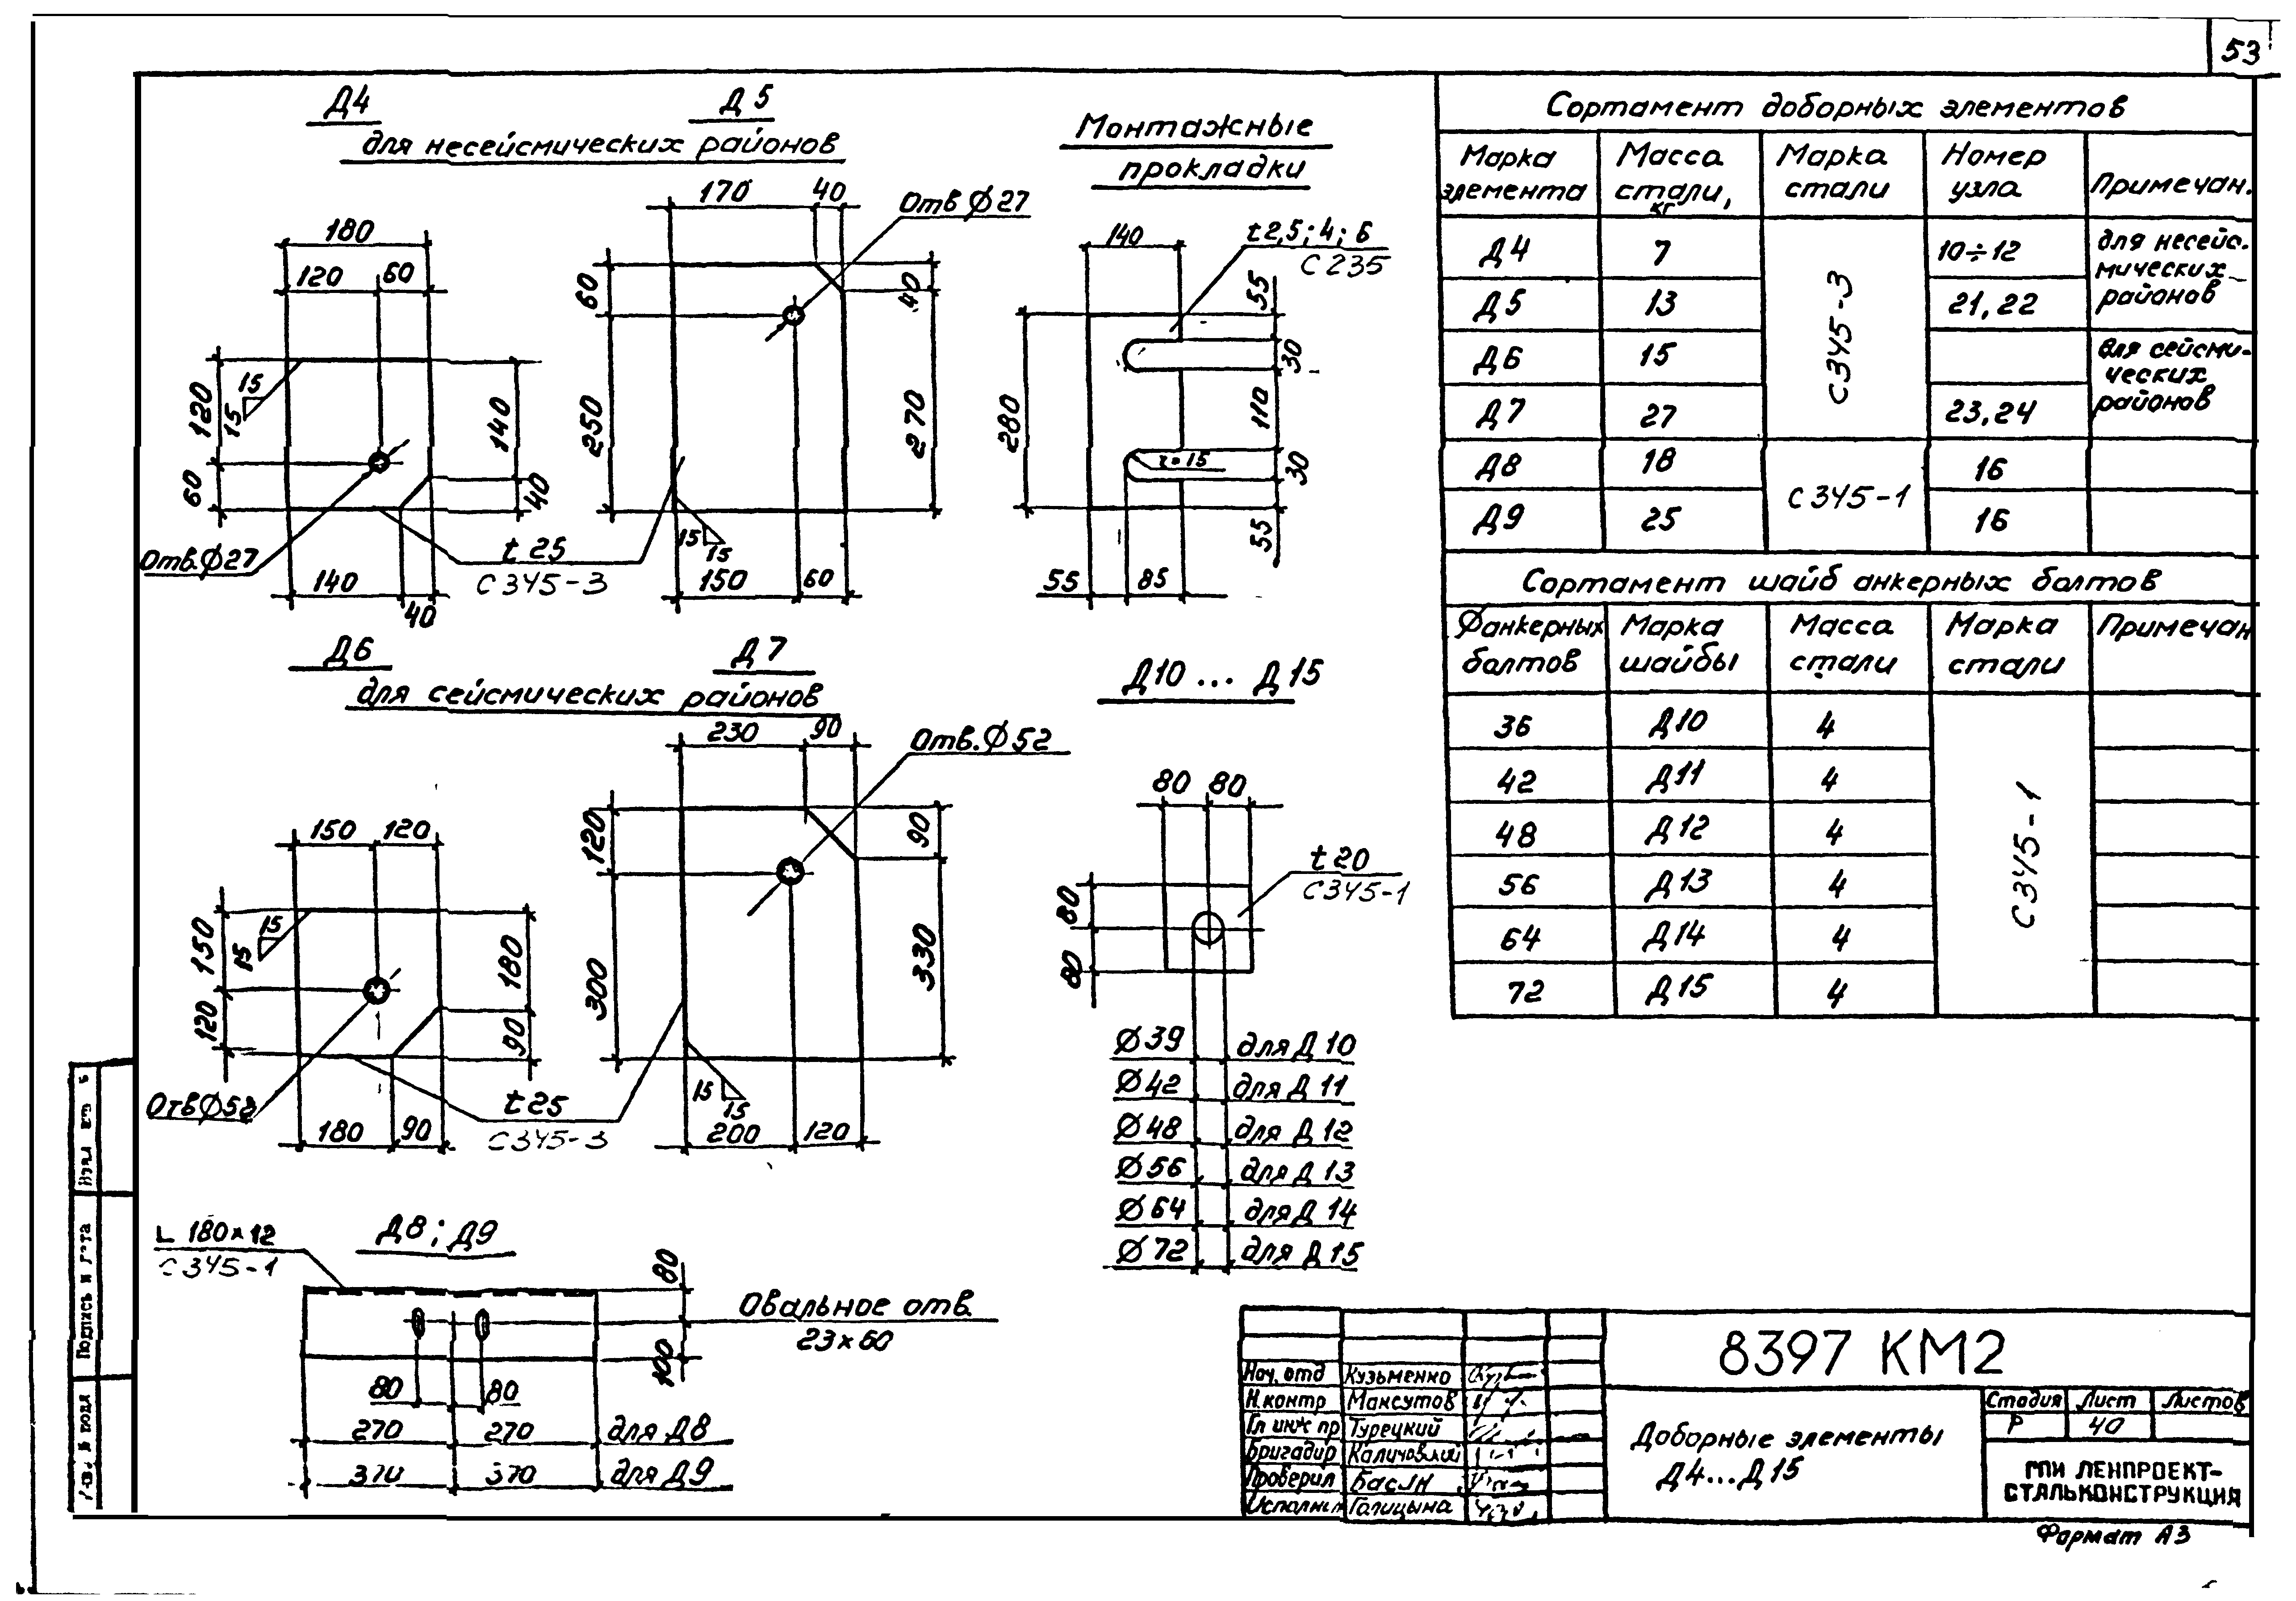 53
Д4
Д5
для несейсмических районов
180
120
60
120
60
15
15
140
40
Отв.Ф27
140
40
t 25
С345-3
170
40
Отв Ф27
60
250
40
270
15
15
150
60
Монтажные
прокладки
140
t2,5; 4; 6
С 235
280
55
30
110
30
55
r=15
55
85
Д6
Д7
для сейсмических районов
150
120
150
120
15
15
180
90
Отв Ф52
180
90
t25
С345-3
230
90
Отв. Ф52
120
300
90
330
15
15
200
120
Д10 ... Д15
80
80
80
80
t 20
С345-1
Ф39 для Д10
Ф42 для Д11
Ф48 для Д12
Ф56 для Д13
Ф64 для Д14
Ф72 для Д15
Д8; Д9
L 180×12
С345-1
80
100
Овальное отв
23×60
80
80
270
270
для Д8
370
370
для Д9
Сортамент доборных элементов
Марка элемента
Масса стали, кг
Марка стали
Номер узла
Примечан.
Д4 7 10÷12
Д5 13 21,22
для несейс-
мических
районов
Д6 15
Д7 27 23,24
для сейсми-
ческих
районов
С345-3
Д8 18 16
Д9 25 16
С345-1
Сортамент шайб анкерных болтов
Фанкерных болтов
Марка шайбы
Масса стали
Марка стали
Примечан
36 Д10 4
42 Д11 4
48 Д12 4
56 Д13 4
64 Д14 4
72 Д15 4
С345-1
8397 КМ2
Нач. отд Кузьменко
Н.контр Максутов
Гл инж пр Турецкий
Бригадир
Проверил Басин
Исполнил Голицына
Доборные элементы
Д4...Д15
Стадия Лист Листов
Р 40
ГПИ ЛЕНПРОЕКТ-
СТАЛЬКОНСТРУКЦИЯ
Формат А3
Подпись и дата